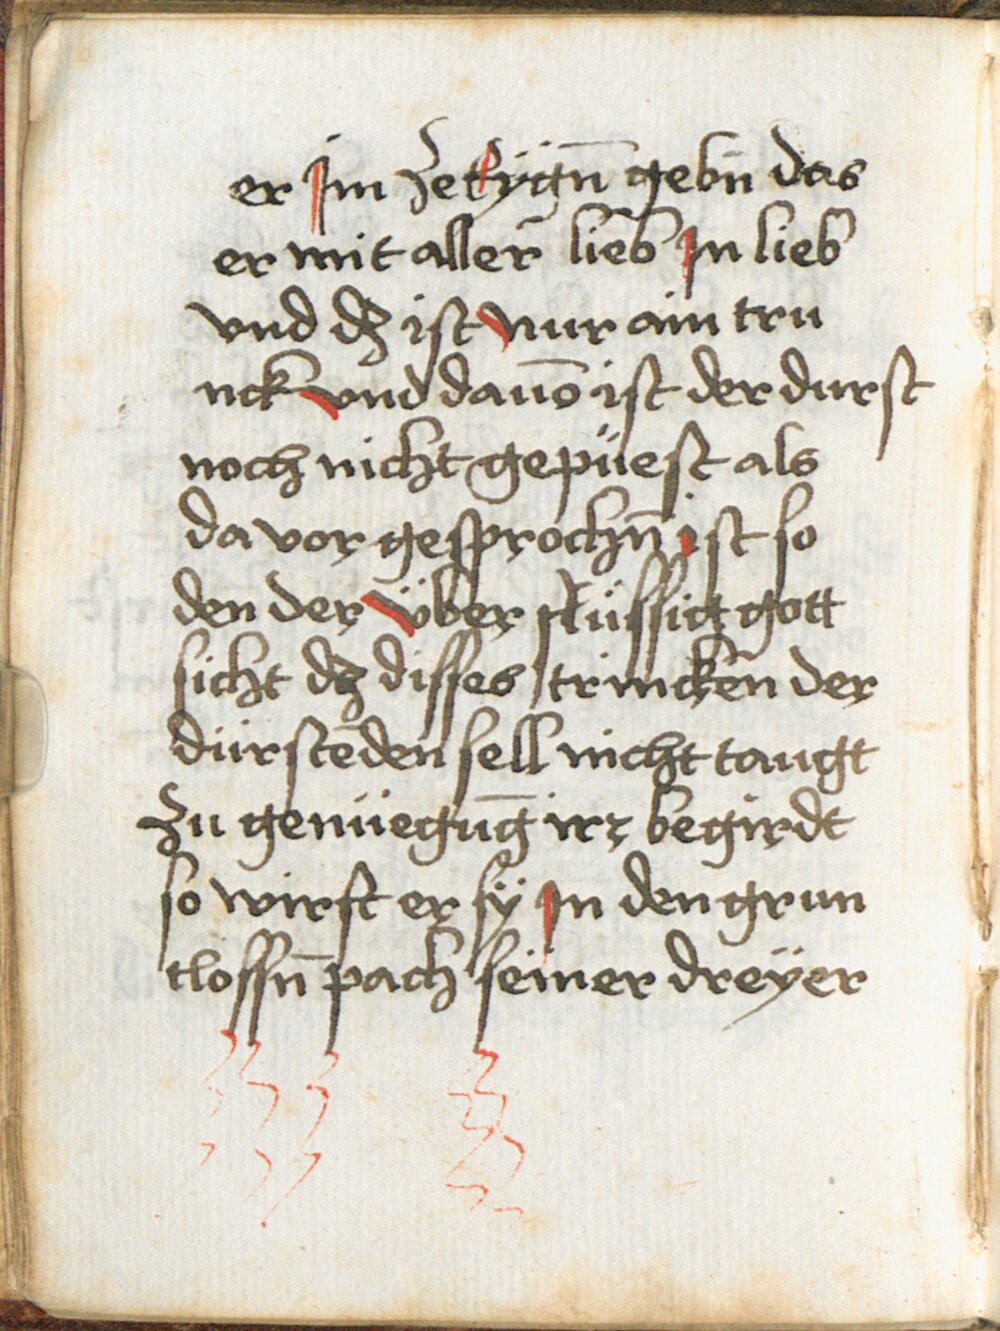 er Jm ze tÿgn̄ gebn̄ das
er mit aller̄ lieb Jn lieb
vnd dʒ ist nur ain tru
nck vnd dauō ist der durst
noch nicht gepüest als
da vor gesprochn̄ ist so
den der über flüssigt gott
sicht dʒ disses trincken̄ der
dürstēden sell nicht taugt
zu genüegūg irr begirdt
so wirft er sÿ Jn den grun
tlossn̄ pach seiner dreÿer